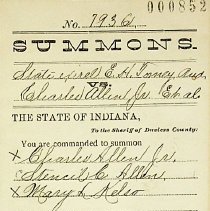 000852
No. 7936
SUMMONS.
State ex rel E. H. Toney Aud
vs.
Charles Allen Jr. Et al
THE STATE OF INDIANA,
To the Sheriff of Dearborn County:
You are commanded to summon
x Charles Allen Jr.
x C Allen
x Mary L Kelso